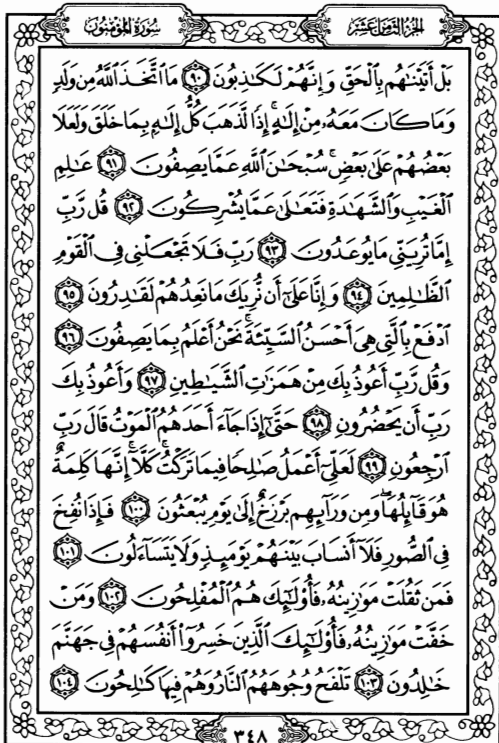 سُورَةُ المُؤْمِنُونَ
الجُزْءُ الثَّامِنَ عَشَرَ
بَلْ أَتَيْنَٰهُم بِٱلْحَقِّ وَإِنَّهُمْ لَكَٰذِبُونَ ٩٠ مَا ٱتَّخَذَ ٱللَّهُ مِن وَلَدٍ
وَمَا كَانَ مَعَهُۥ مِنْ إِلَٰهٍ ۚ إِذًا لَّذَهَبَ كُلُّ إِلَٰهٍۭ بِمَا خَلَقَ وَلَعَلَا
بَعْضُهُمْ عَلَىٰ بَعْضٍ ۚ سُبْحَٰنَ ٱللَّهِ عَمَّا يَصِفُونَ ٩١ عَٰلِمِ
ٱلْغَيْبِ وَٱلشَّهَٰدَةِ فَتَعَٰلَىٰ عَمَّا يُشْرِكُونَ ٩٢ قُل رَّبِّ
إِمَّا تُرِيَنِّي مَا يُوعَدُونَ ٩٣ رَبِّ فَلَا تَجْعَلْنِي فِي ٱلْقَوْمِ
ٱلظَّٰلِمِينَ ٩٤ وَإِنَّا عَلَىٰٓ أَن نُّرِيَكَ مَا نَعِدُهُمْ لَقَٰدِرُونَ ٩٥
ٱدْفَعْ بِٱلَّتِي هِيَ أَحْسَنُ ٱلسَّيِّئَةَ ۚ نَحْنُ أَعْلَمُ بِمَا يَصِفُونَ ٩٦
وَقُل رَّبِّ أَعُوذُ بِكَ مِنْ هَمَزَٰتِ ٱلشَّيَٰطِينِ ٩٧ وَأَعُوذُ بِكَ
رَبِّ أَن يَحْضُرُونِ ٩٨ حَتَّىٰٓ إِذَا جَآءَ أَحَدَهُمُ ٱلْمَوْتُ قَالَ رَبِّ
ٱرْجِعُونِ ٩٩ لَعَلِّيٓ أَعْمَلُ صَٰلِحًا فِيمَا تَرَكْتُ ۚ كَلَّآ ۚ إِنَّهَا كَلِمَةٌ
هُوَ قَآئِلُهَا ۖ وَمِن وَرَآئِهِم بَرْزَخٌ إِلَىٰ يَوْمِ يُبْعَثُونَ ١٠٠ فَإِذَا نُفِخَ
فِي ٱلصُّورِ فَلَآ أَنسَابَ بَيْنَهُمْ يَوْمَئِذٍ وَلَا يَتَسَآءَلُونَ ١٠١
فَمَن ثَقُلَتْ مَوَٰزِينُهُۥ فَأُو۟لَٰٓئِكَ هُمُ ٱلْمُفْلِحُونَ ١٠٢ وَمَنْ
خَفَّتْ مَوَٰزِينُهُۥ فَأُو۟لَٰٓئِكَ ٱلَّذِينَ خَسِرُوٓا۟ أَنفُسَهُمْ فِي جَهَنَّمَ
خَٰلِدُونَ ١٠٣ تَلْفَحُ وُجُوهَهُمُ ٱلنَّارُ وَهُمْ فِيهَا كَٰلِحُونَ ١٠٤
٣٤٨